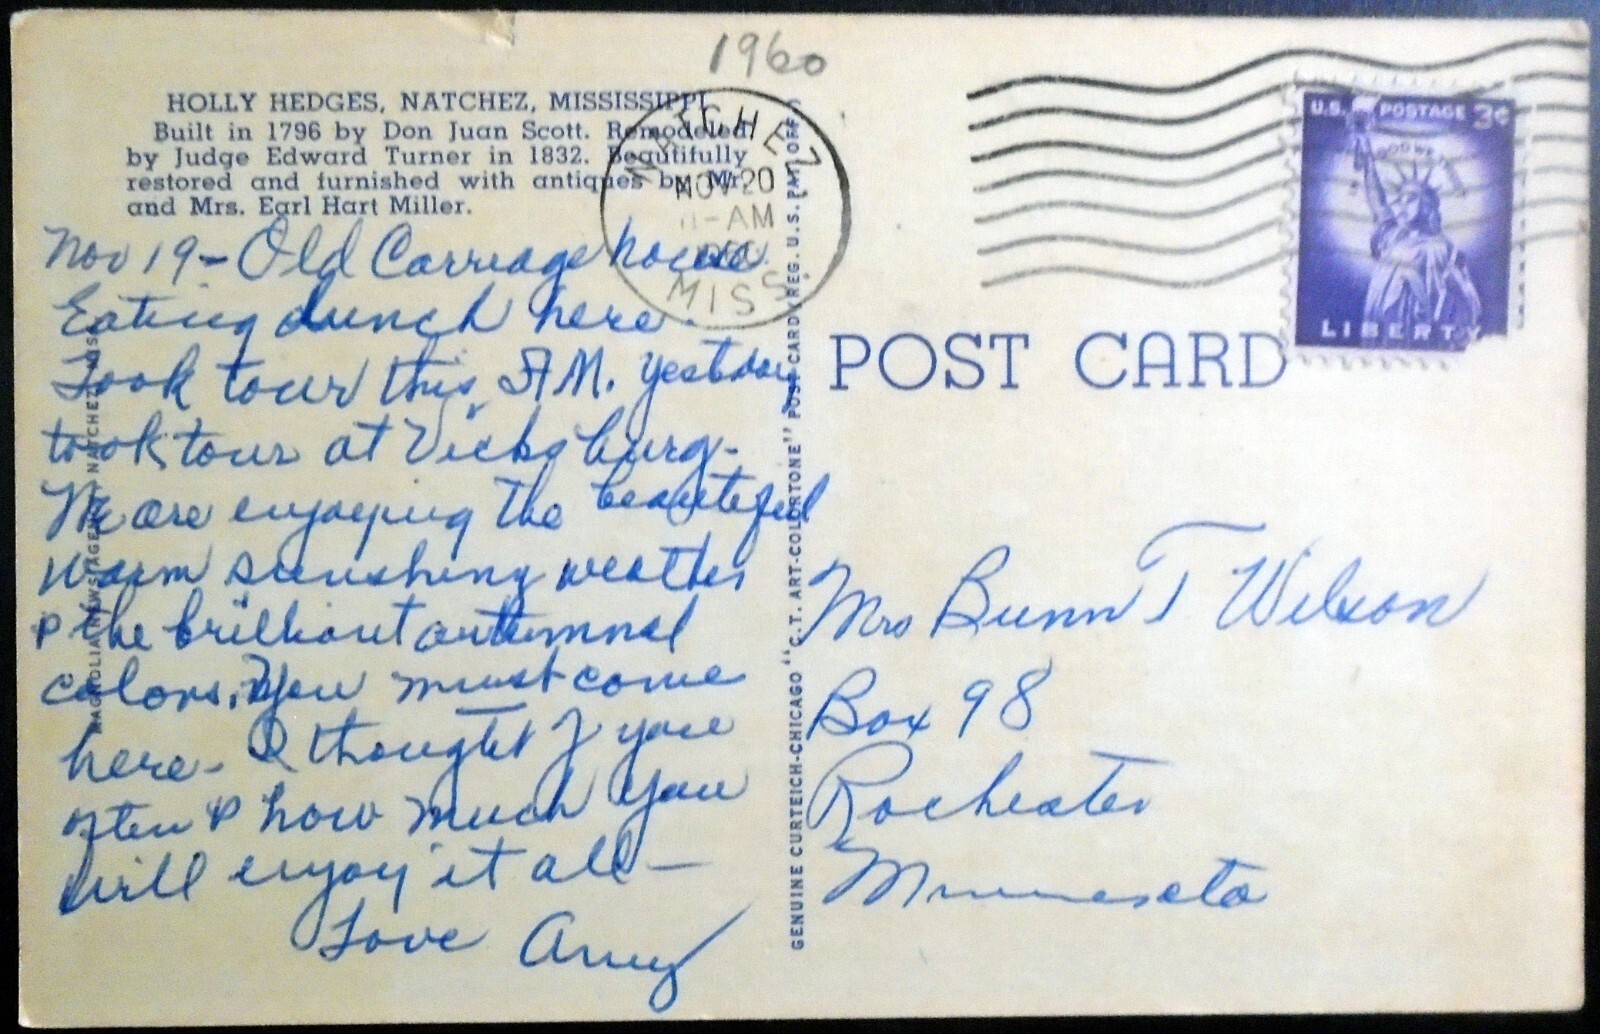 1960
HOLLY HEDGES, NATCHEZ, MISSISSIPPI
Built in 1796 by Don Juan Scott. Remodeled
by Judge Edward Turner in 1832. Beautifully
restored and furnished with antiques by Mr.
and Mrs. Earl Hart Miller.
NATCHEZ
NOV 20
11-AM
1960
MISS.
U.S. POSTAGE 3¢
IN GOD WE TRUST
LIBERTY
POST CARD
Nov 19 - Old Carriage house
Eating lunch here.
Took tour this A.M. Yestday
took tour at Vicksburg -
We are enjoying the beautiful
warm sunshiny weather
& the brilliant autumnal
colors. You must come
here - I thought of you
often & how much you
will enjoy it all -
Love Amy
MAGNOLIA NEWS AGENCY, NATCHEZ, MISS.
GENUINE CURTEICH-CHICAGO "C.T. ART-COLORTONE" POST CARD (REG. U.S. PAT. OFF.)
Mrs Bunn T Wilson
Box 98
Rochester
Minnesota